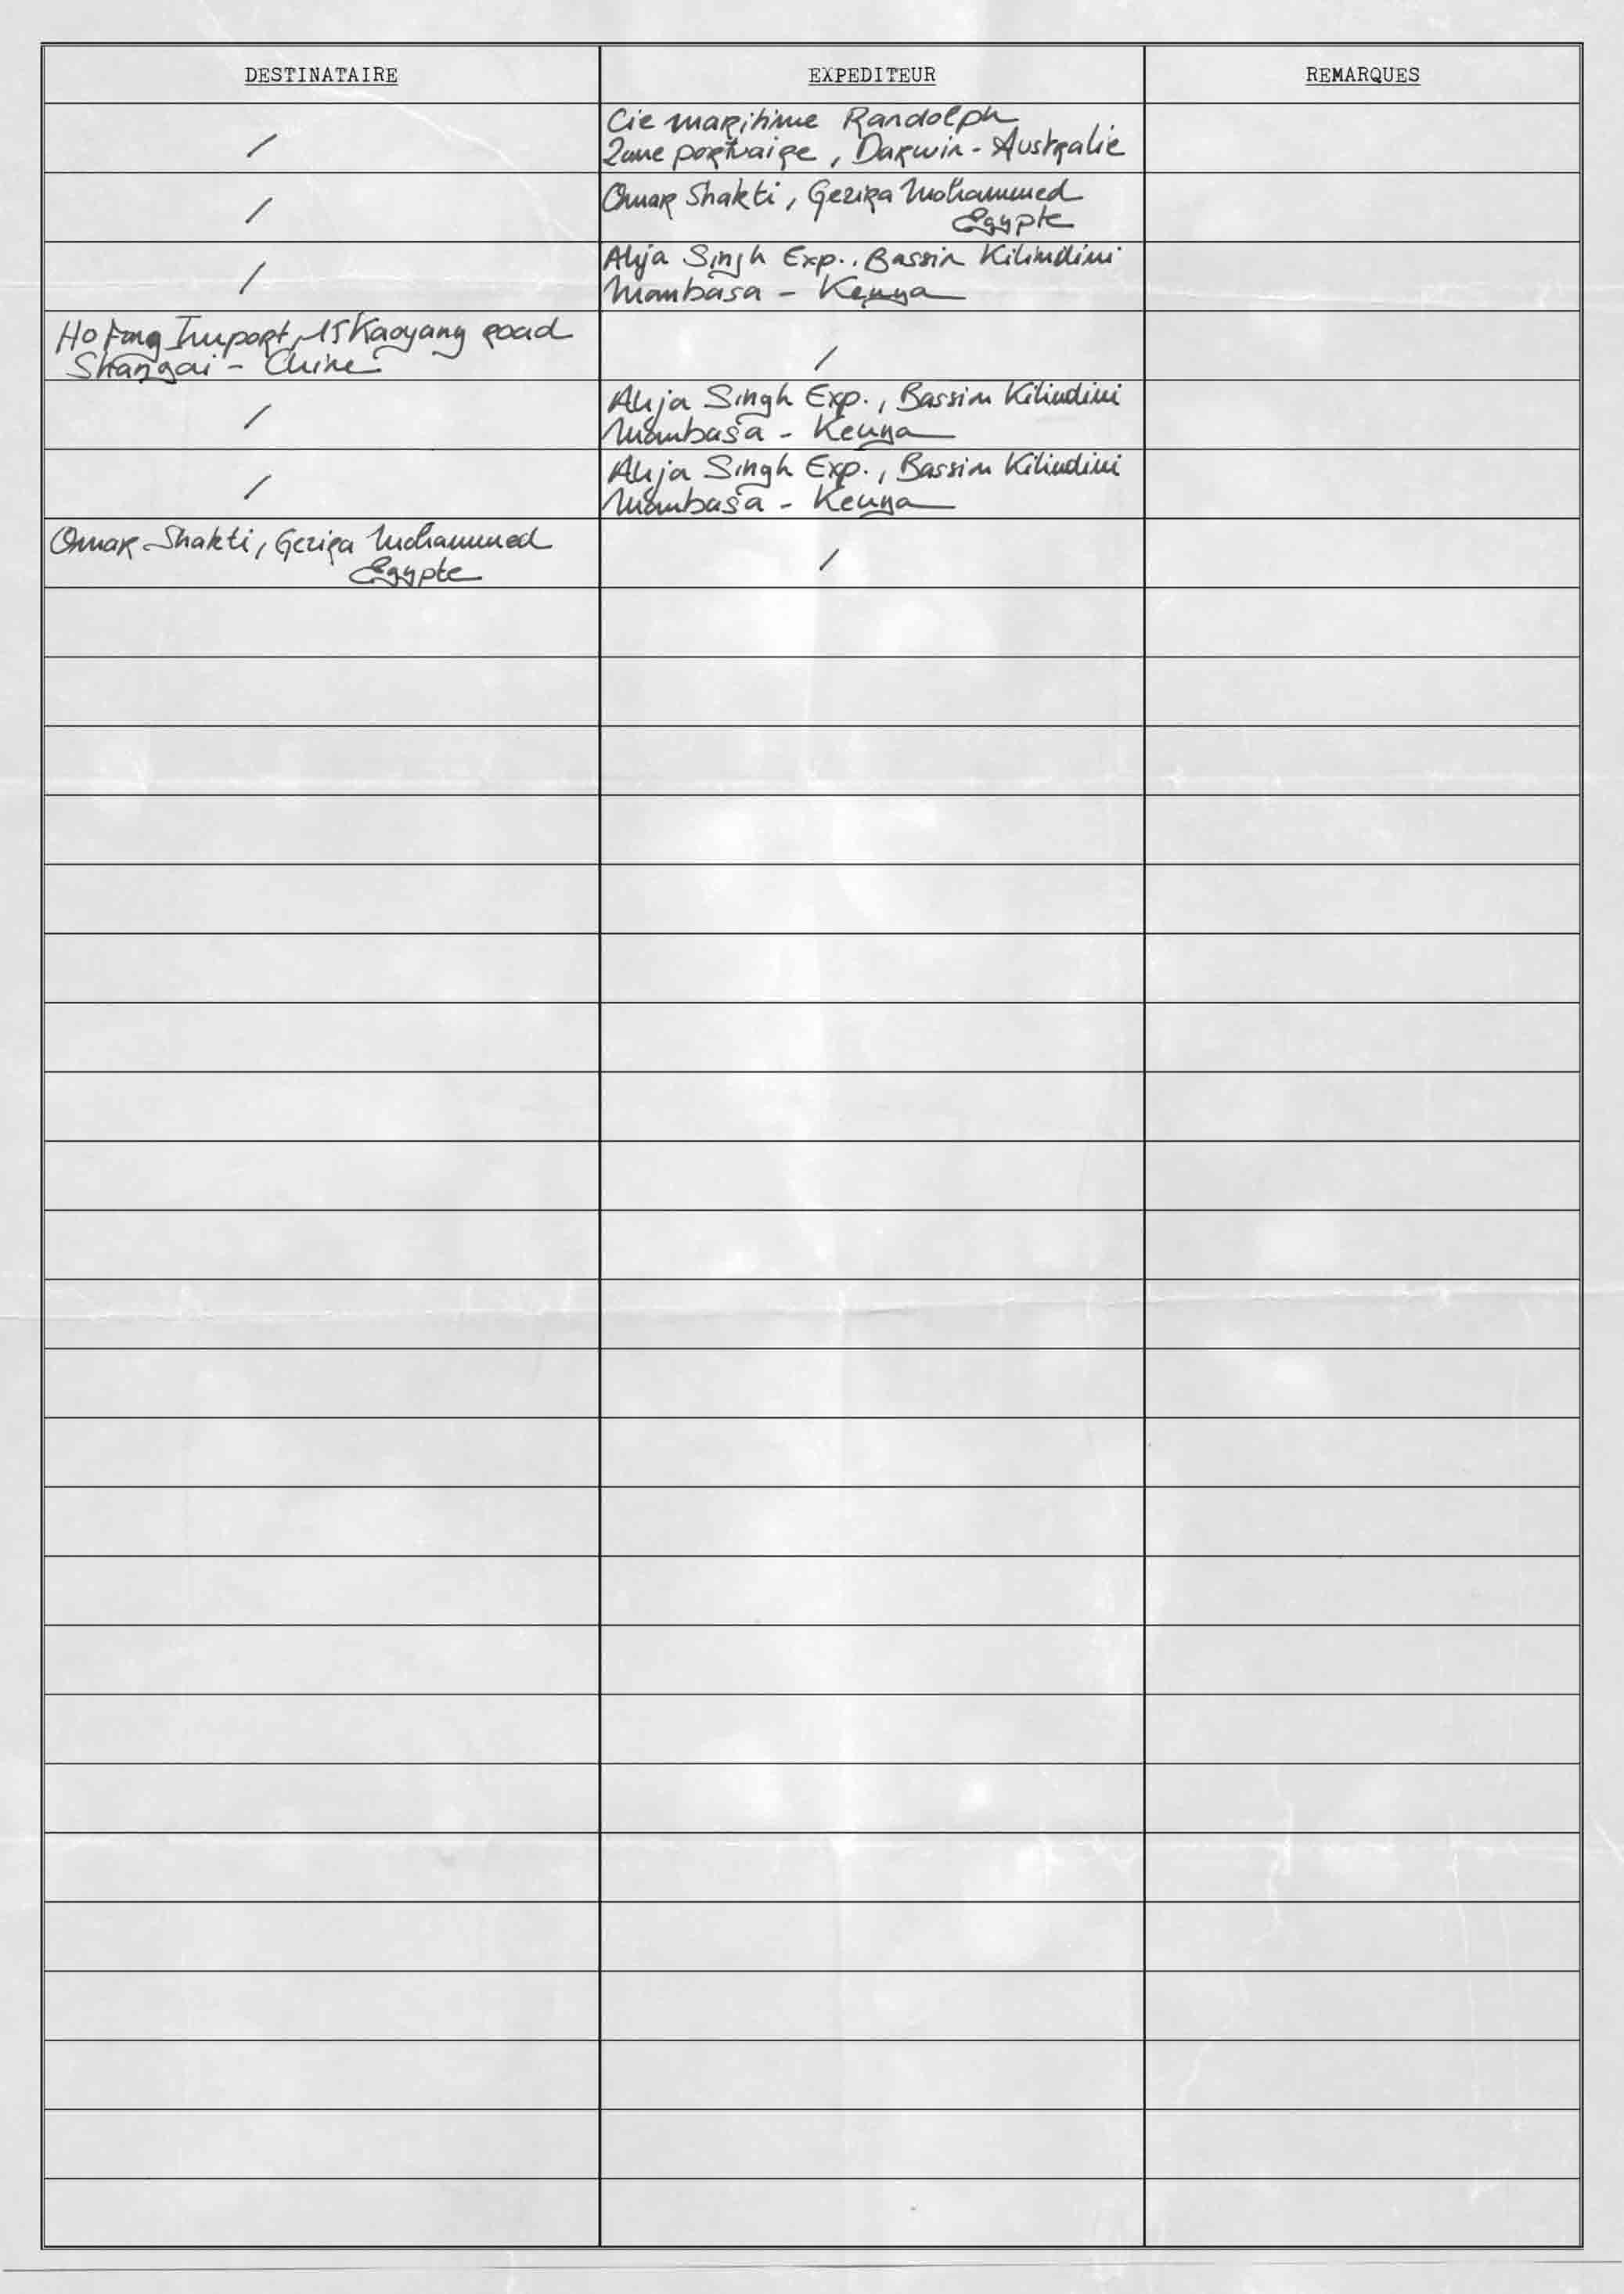 DESTINATAIRE EXPEDITEUR REMARQUES
/ Cie maritime Randolph
Zone portuaire, Darwin - Australie
/ Omar Shakti, Gezira Mohammed
Egypte
/ Ahja Singh Exp., Bassin Kilindini
Mombasa - Kenya
Ho Fong Import, 15 Kaoyang road
Shangai - Chine
/
/ Ahja Singh Exp., Bassin Kilindini
Mombasa - Kenya
/ Ahja Singh Exp., Bassin Kilindini
Mombasa - Kenya
Omar Shakti, Gezira Mohammed
Egypte
/